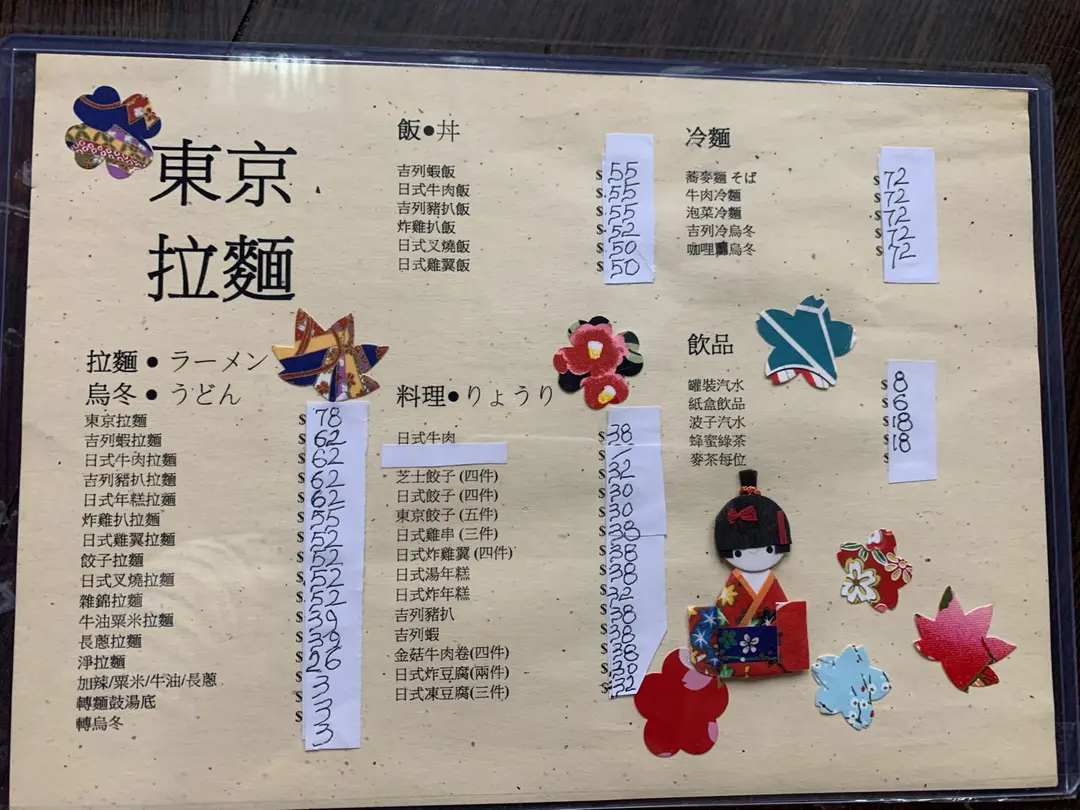 東京
拉麵
拉麵●ラーメン
烏冬●うどん
東京拉麵 $ 78
吉列蝦拉麵 $ 62
日式牛肉拉麵 $ 62
吉列豬扒拉麵 $ 62
日式年糕拉麵 $ 62
炸雞扒拉麵 $ 55
日式雞翼拉麵 $ 52
餃子拉麵 $ 52
日式叉燒拉麵 $ 52
雜錦拉麵 $ 52
牛油粟米拉麵 $ 39
長蔥拉麵 $ 39
淨拉麵 $ 26
加辣/粟米/牛油/長蔥 $ 3
轉麵鼓湯底 $ 3
轉烏冬 $ 3
飯●丼
吉列蝦飯 $ 55
日式牛肉飯 $ 55
吉列豬扒飯 $ 55
炸雞扒飯 $ 52
日式叉燒飯 $ 50
日式雞翼飯 $ 50
料理●りょうり
日式牛肉 $ 38
芝士餃子 (四件) $ 32
日式餃子 (四件) $ 30
東京餃子 (五件) $ 30
日式雞串 (三件) $ 38
日式炸雞翼 (四件) $ 38
日式湯年糕 $ 38
日式炸年糕 $ 32
吉列豬扒 $ 38
吉列蝦 $ 38
金菇牛肉卷(四件) $ 38
日式炸豆腐(兩件) $ 30
日式凍豆腐(三件) $ 32
冷麵
蕎麥麵 そば $ 72
牛肉冷麵 $ 72
泡菜冷麵 $ 72
吉列冷烏冬 $ 72
咖哩烏冬 $ 72
飲品
罐裝汽水 $ 8
紙盒飲品 $ 6
波子汽水 $ 18
蜂蜜綠茶 $ 18
麥茶每位 $